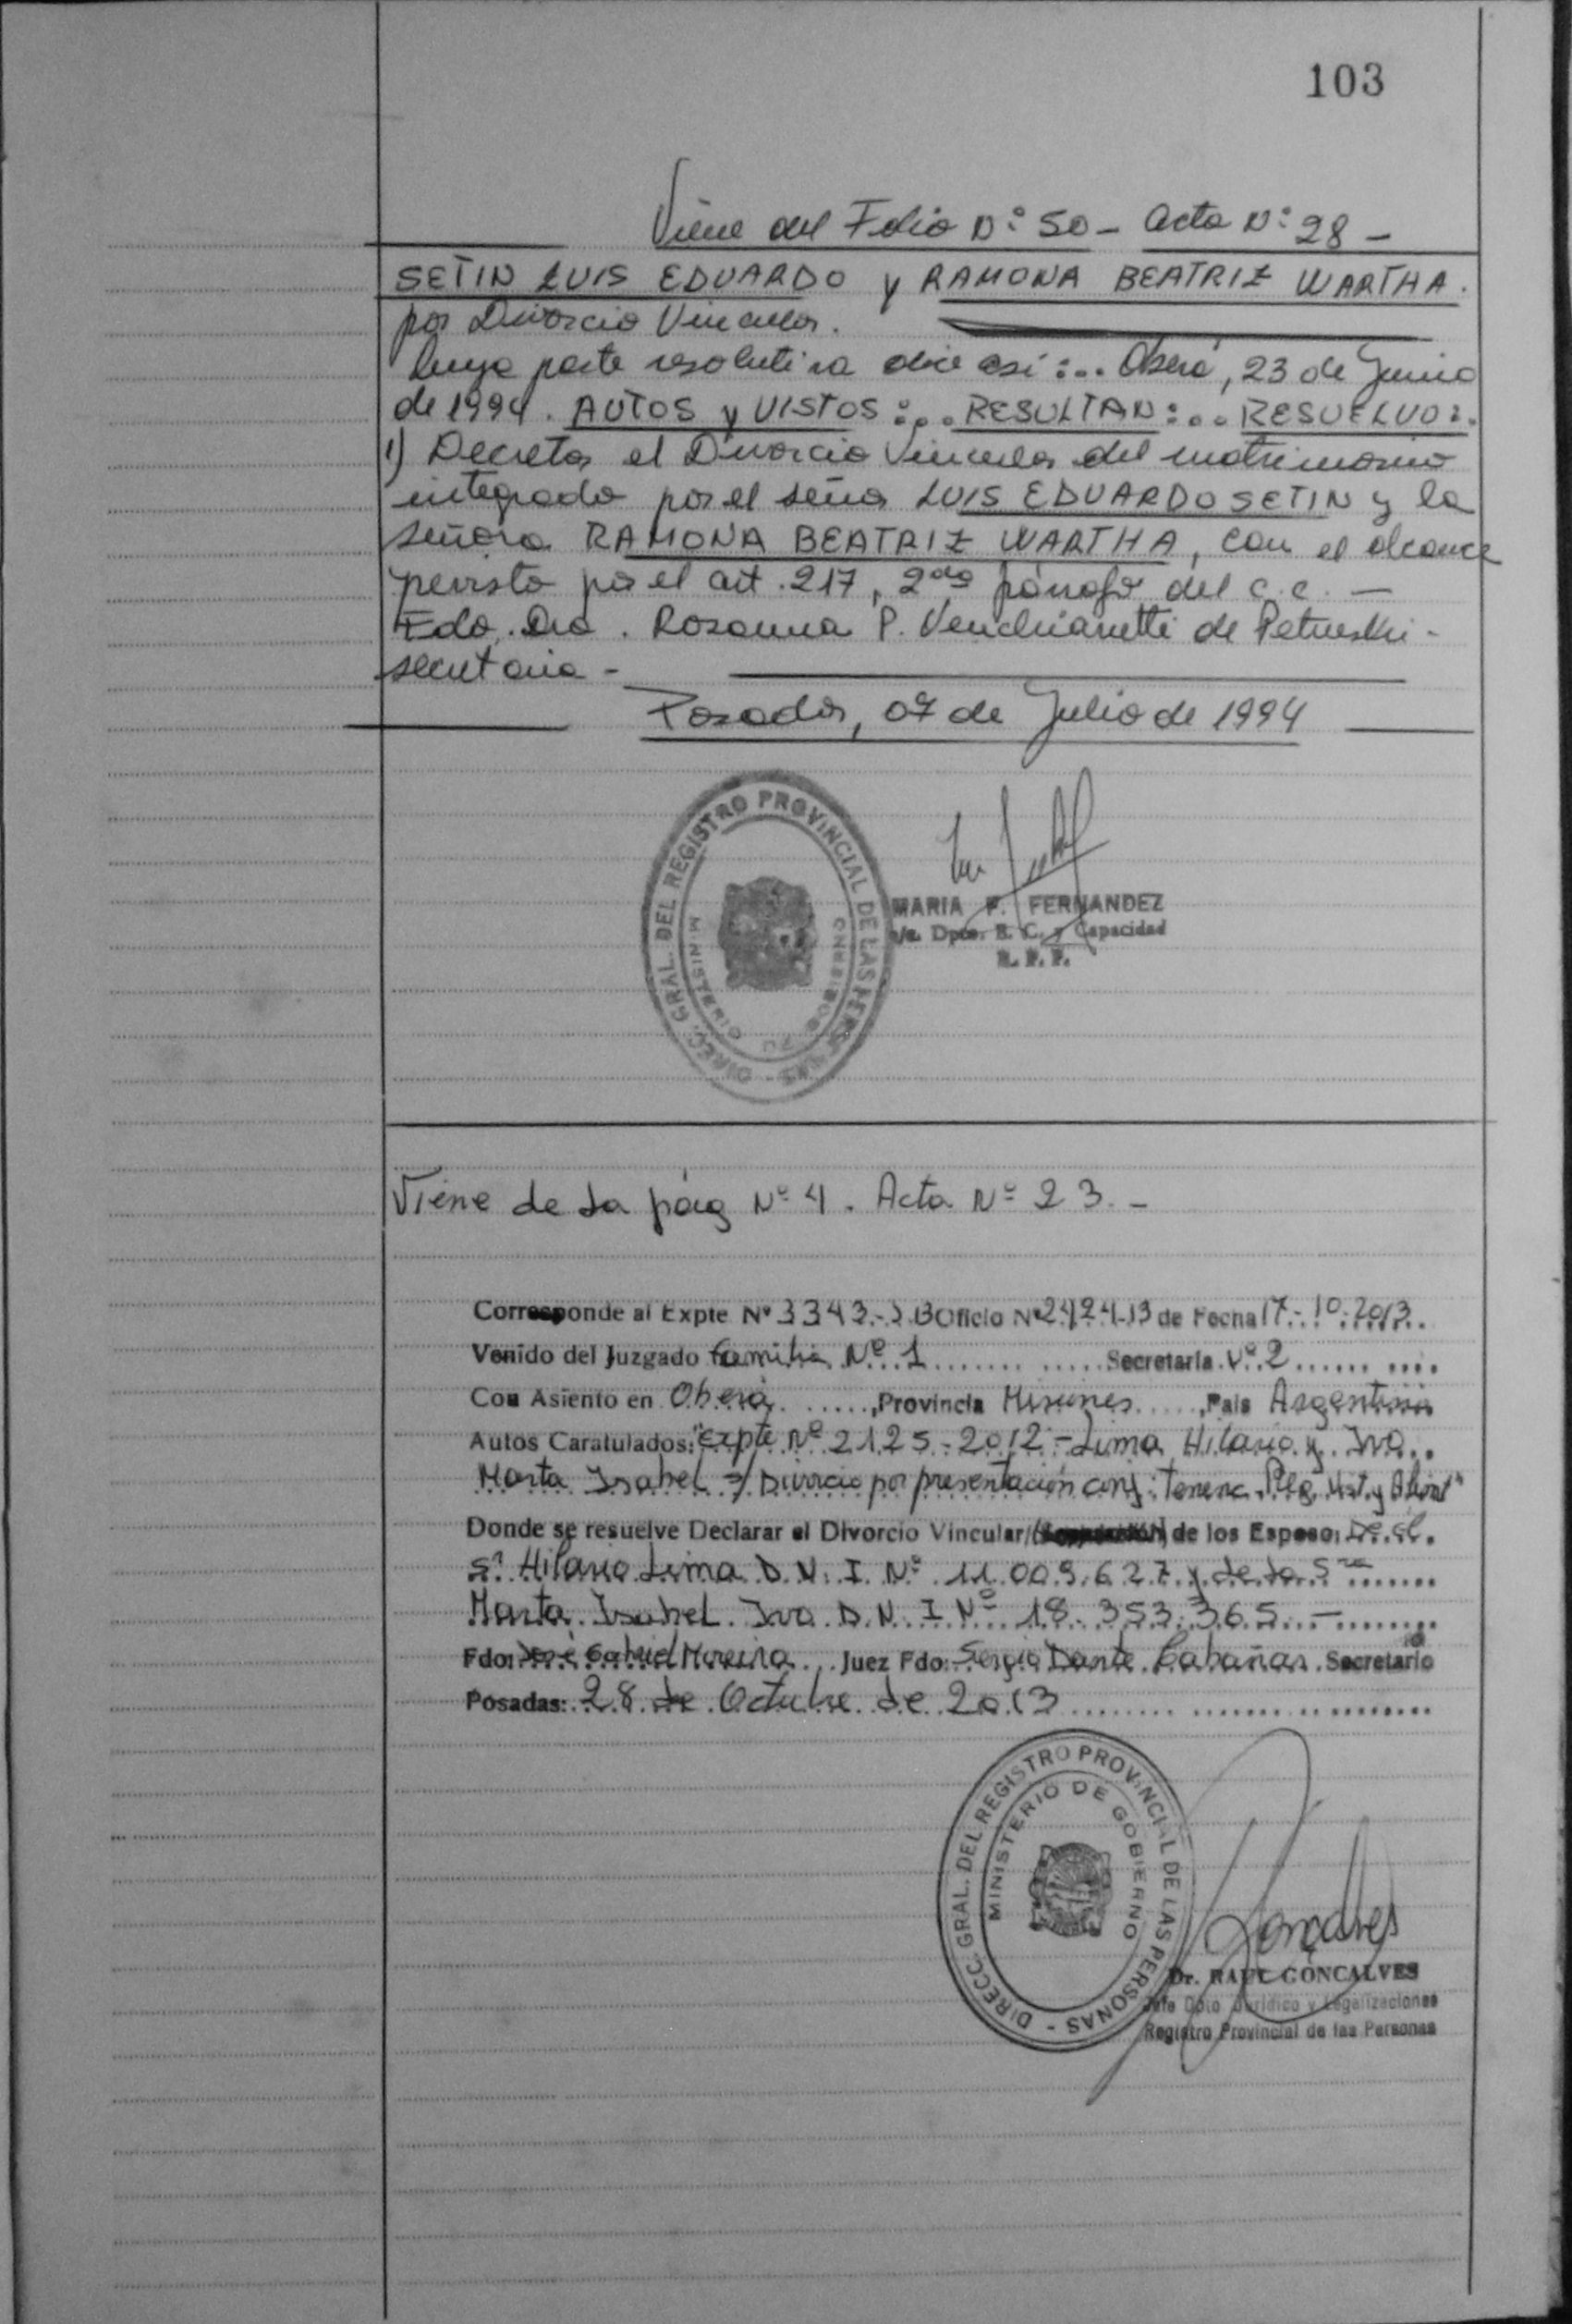 103
Viene del Folio N° 50 - Acta N° 28 -
SETIN LUIS EDUARDO y RAMONA BEATRIZ WARTHA.
por Divorcio Vincular.
Cuya parte resolutiva dice asi:.. Oberá, 23 de Junio
de 1994. AUTOS y VISTOS:.. RESULTAN:.. RESUELVO:.
1) Decretar el Divorcio Vincular del matrimonio
integrado por el señor LUIS EDUARDO SETIN y la
señora RAMONA BEATRIZ WARTHA, con el alcance
previsto por el art. 217, 2do párrafo del C.C. -
Fdo. Dra. Rosanna P. Venchiarutti de Petruski -
secretaria -
Posadas, 07 de Julio de 1994
DIREC. GRAL. DEL REGISTRO PROVINCIAL DE LAS PERSONAS -
MINISTERIO DE GOBIERNO
MARIA F. FERNANDEZ
a/c. Dpto. E. C. y Capacidad
R. P. P.
Viene de la pág N° 4. Acta N° 23. -
Corresponde al Expte N° 3343-13 Oficio N° 2424-13 de Fecha 17-10-2013
Venido del Juzgado Familia N° 1 Secretaría N° 2
Con Asiento en Oberá, Provincia Misiones, País Argentina
Autos Caratulados: "Expte N° 2125-2012 - Lima Hilario y Iva
Marta Isabel s/ Divorcio por presentación conj. Tenenc.
Donde se resuelve Declarar el Divorcio Vincular/ de los Esposo: De el
Sr. Hilario Lima D.N.I. N° 11.009.627 y de la Sra
Marta Isabel Iva D.N.I N° 18.353.365. -
Fdo: José Gabriel Moreira Juez Fdo: Sergio Dante Cabañas Secretario
Posadas: 28 de Octubre de 2013
DIRECC. GRAL. DEL REGISTRO PROVINCIAL DE LAS PERSONAS -
MINISTERIO DE GOBIERNO
Dr. RAUL GONCALVES
Jefe Dpto Jurídico y Legalizaciones
Registro Provincial de las Personas